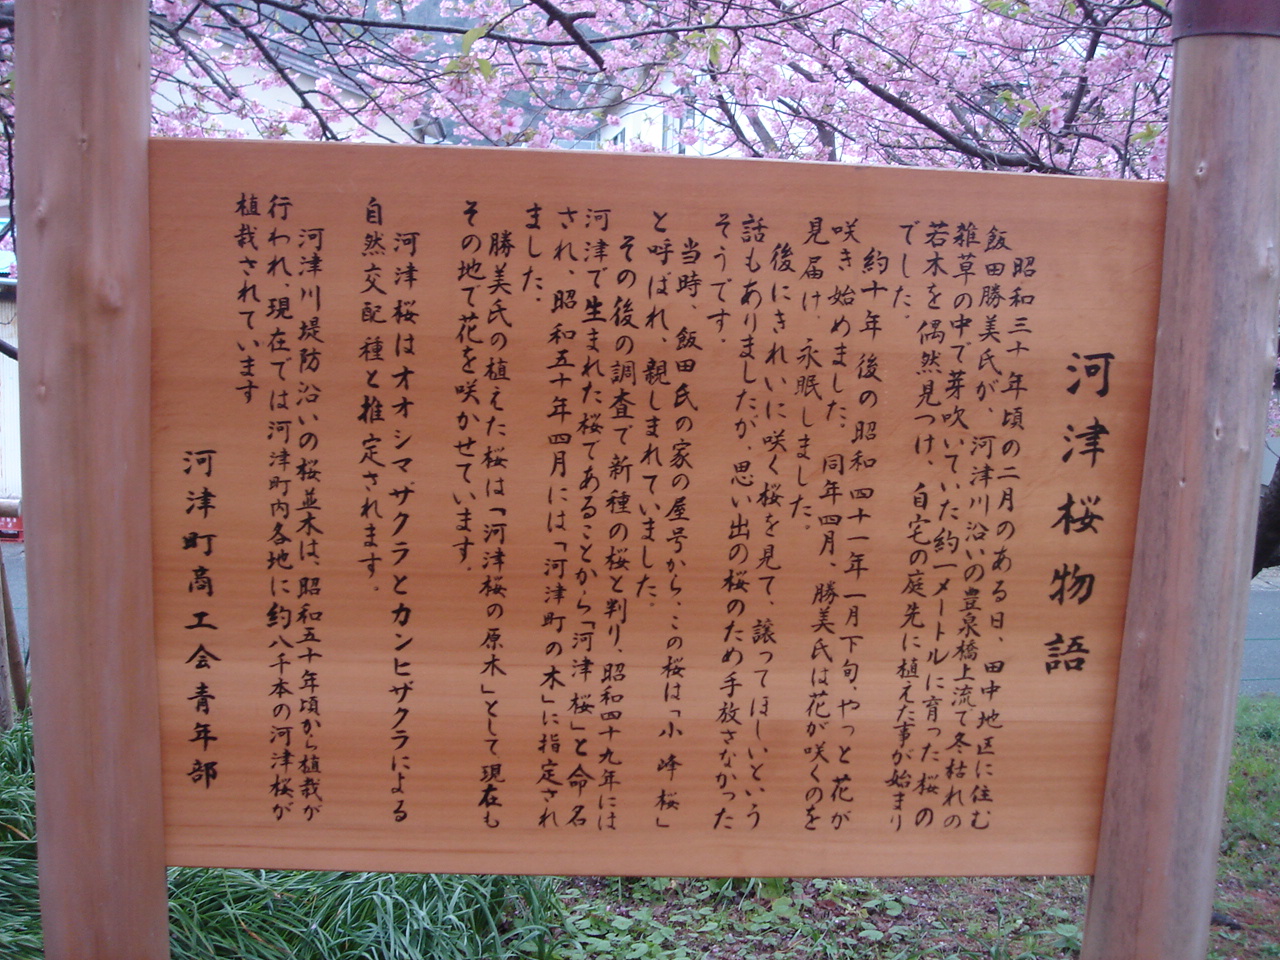 河津桜物語
昭和三十年頃の二月のある日、田中地区に住む
飯田勝美氏が、河津川沿いの豊泉橋上流で冬枯れの
雑草の中で芽吹いていた約一メートルに育った桜の
若木を偶然見つけ、自宅の庭先に植えた事が始まり
でした。
約十年後の昭和四十一年一月下旬、やっと花が
咲き始めました。同年四月、勝美氏は花が咲くのを
見届け、永眠しました。
後にきれいに咲く桜を見て、譲ってほしいという
話もありましたが、思い出の桜のため手放さなかった
そうです。
当時、飯田氏の家の屋号から、この桜は「小峰桜」
と呼ばれ、親しまれていました。
その後の調査で新種の桜と判り、昭和四十九年には
河津で生まれた桜であることから「河津桜」と命名
され、昭和五十年四月には「河津町の木」に指定され
ました。
勝美氏の植えた桜は「河津桜の原木」として現在も
その地で花を咲かせています。
河津桜はオオシマザクラとカンヒザクラによる
自然交配種と推定されます。
河津川堤防沿いの桜並木は、昭和五十年頃から植栽が
行われ、現在では河津町内各地に約八千本の河津桜が
植栽されています
河津町商工会青年部